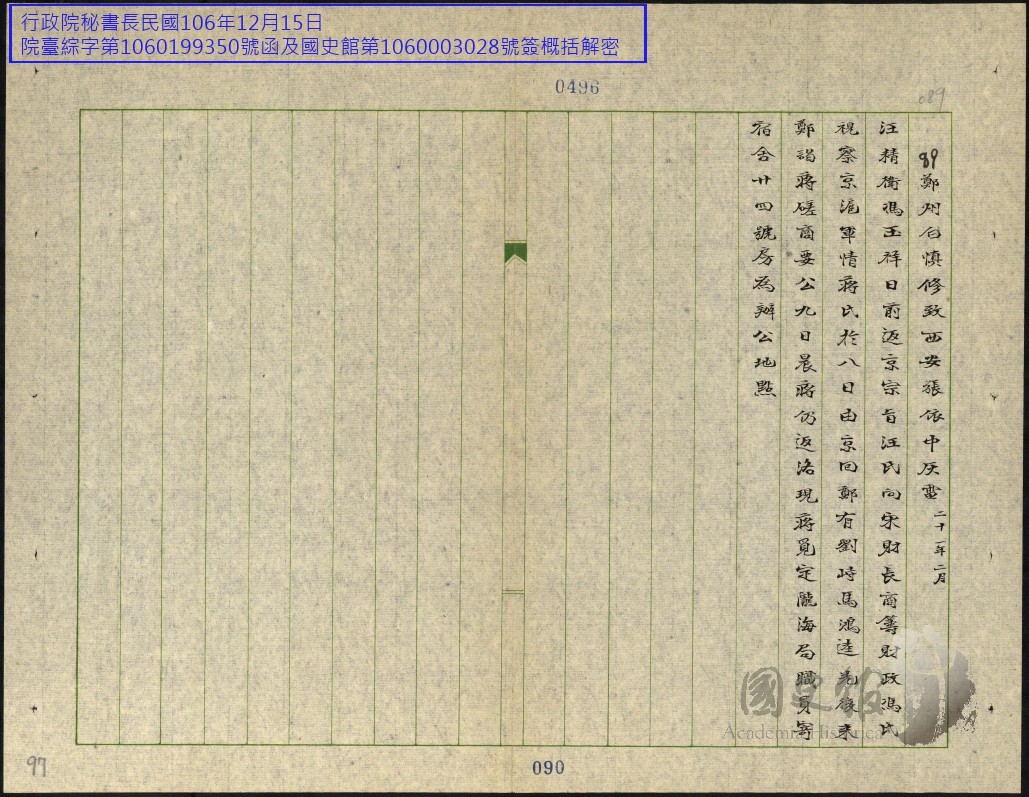 行政院秘書長民國106年12月15日
院臺綜字第1060199350號函及國史館第1060003028號簽概括解密
0496
089
89鄭州白慎修致西安張依中灰電二十一年二月
汪精衛馮玉祥日前返京宗旨汪氏向宋財長商籌財政馮氏
視察京滬軍情蔣氏於八日由京回鄭有劉峙馬鴻逵先後來
鄭謁蔣磋商要公九日晨蔣仍返洛現蔣覓定隴海局職員寄
宿舍廿四號房為辦公地點
國史館
Academia Historica
97
090